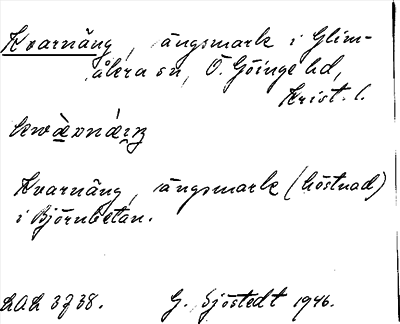 Kvarnäng, ängsmark i Glim-
åkra sn, Ö. Göinge hd,
Krist. l.
Kvarnäng, ängsmark (höstnad)
i Björnbetan.
LAL 3738. G. Sjöstedt 1946.